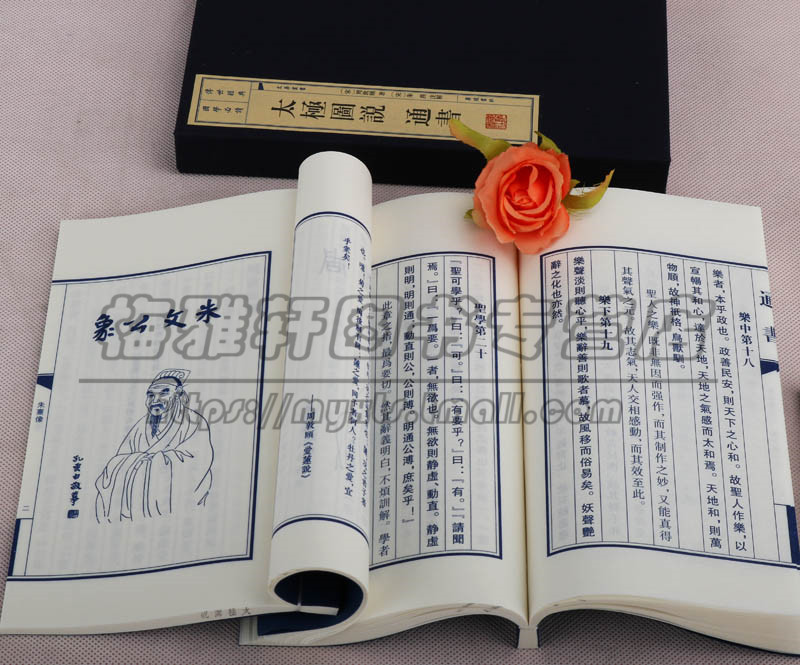 傳世經典
國學必讀
太極圖說 通書
通書
樂中第十八
樂者，本乎政也。政善民安，則天下之心和。故聖人作樂，以
宣暢其和心，達於天地，天地之氣感而太和焉。天地和，則萬
物順，故神祇格，鳥獸馴。
聖人之樂，既非無因而强作，而其制作之妙，又能真得
其聲氣之元。故其志氣，天人交相感動，而其效至此。
樂下第十九
樂聲淡則聽心平，樂辭善則歌者慕。故風移而俗易矣。妖聲艷
辭之化也亦然。
聖學第二十
『聖可學乎？』曰：『可。』曰：『有要乎？』曰：『有。』『請聞
焉。』曰：『一爲要。一者，無欲也。無欲則静虚、動直。静虚
則明，明則通；動直則公，公則溥。明通公溥，庶矣乎！』
此章之指，最爲要切。然其辭義明白，不煩訓解。學者
乎衆矣！
——周敦頤《愛蓮說》
朱文公象
孔雲白敬摹
朱熹像
二
太極圖說
梅雅轩图书专营店